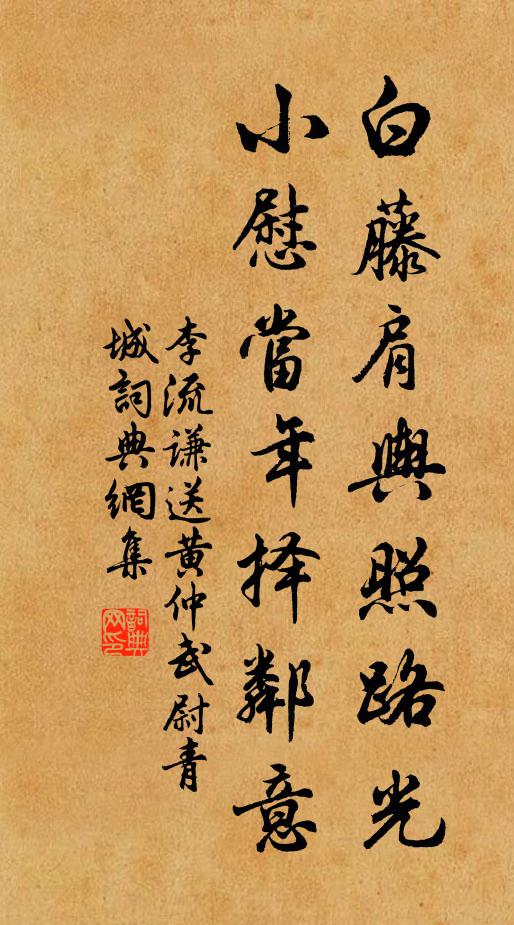 白藤肩輿照路光
小慰當年择鄰意
李流谦送黄仲武尉青
城詞典網集
詞典网印